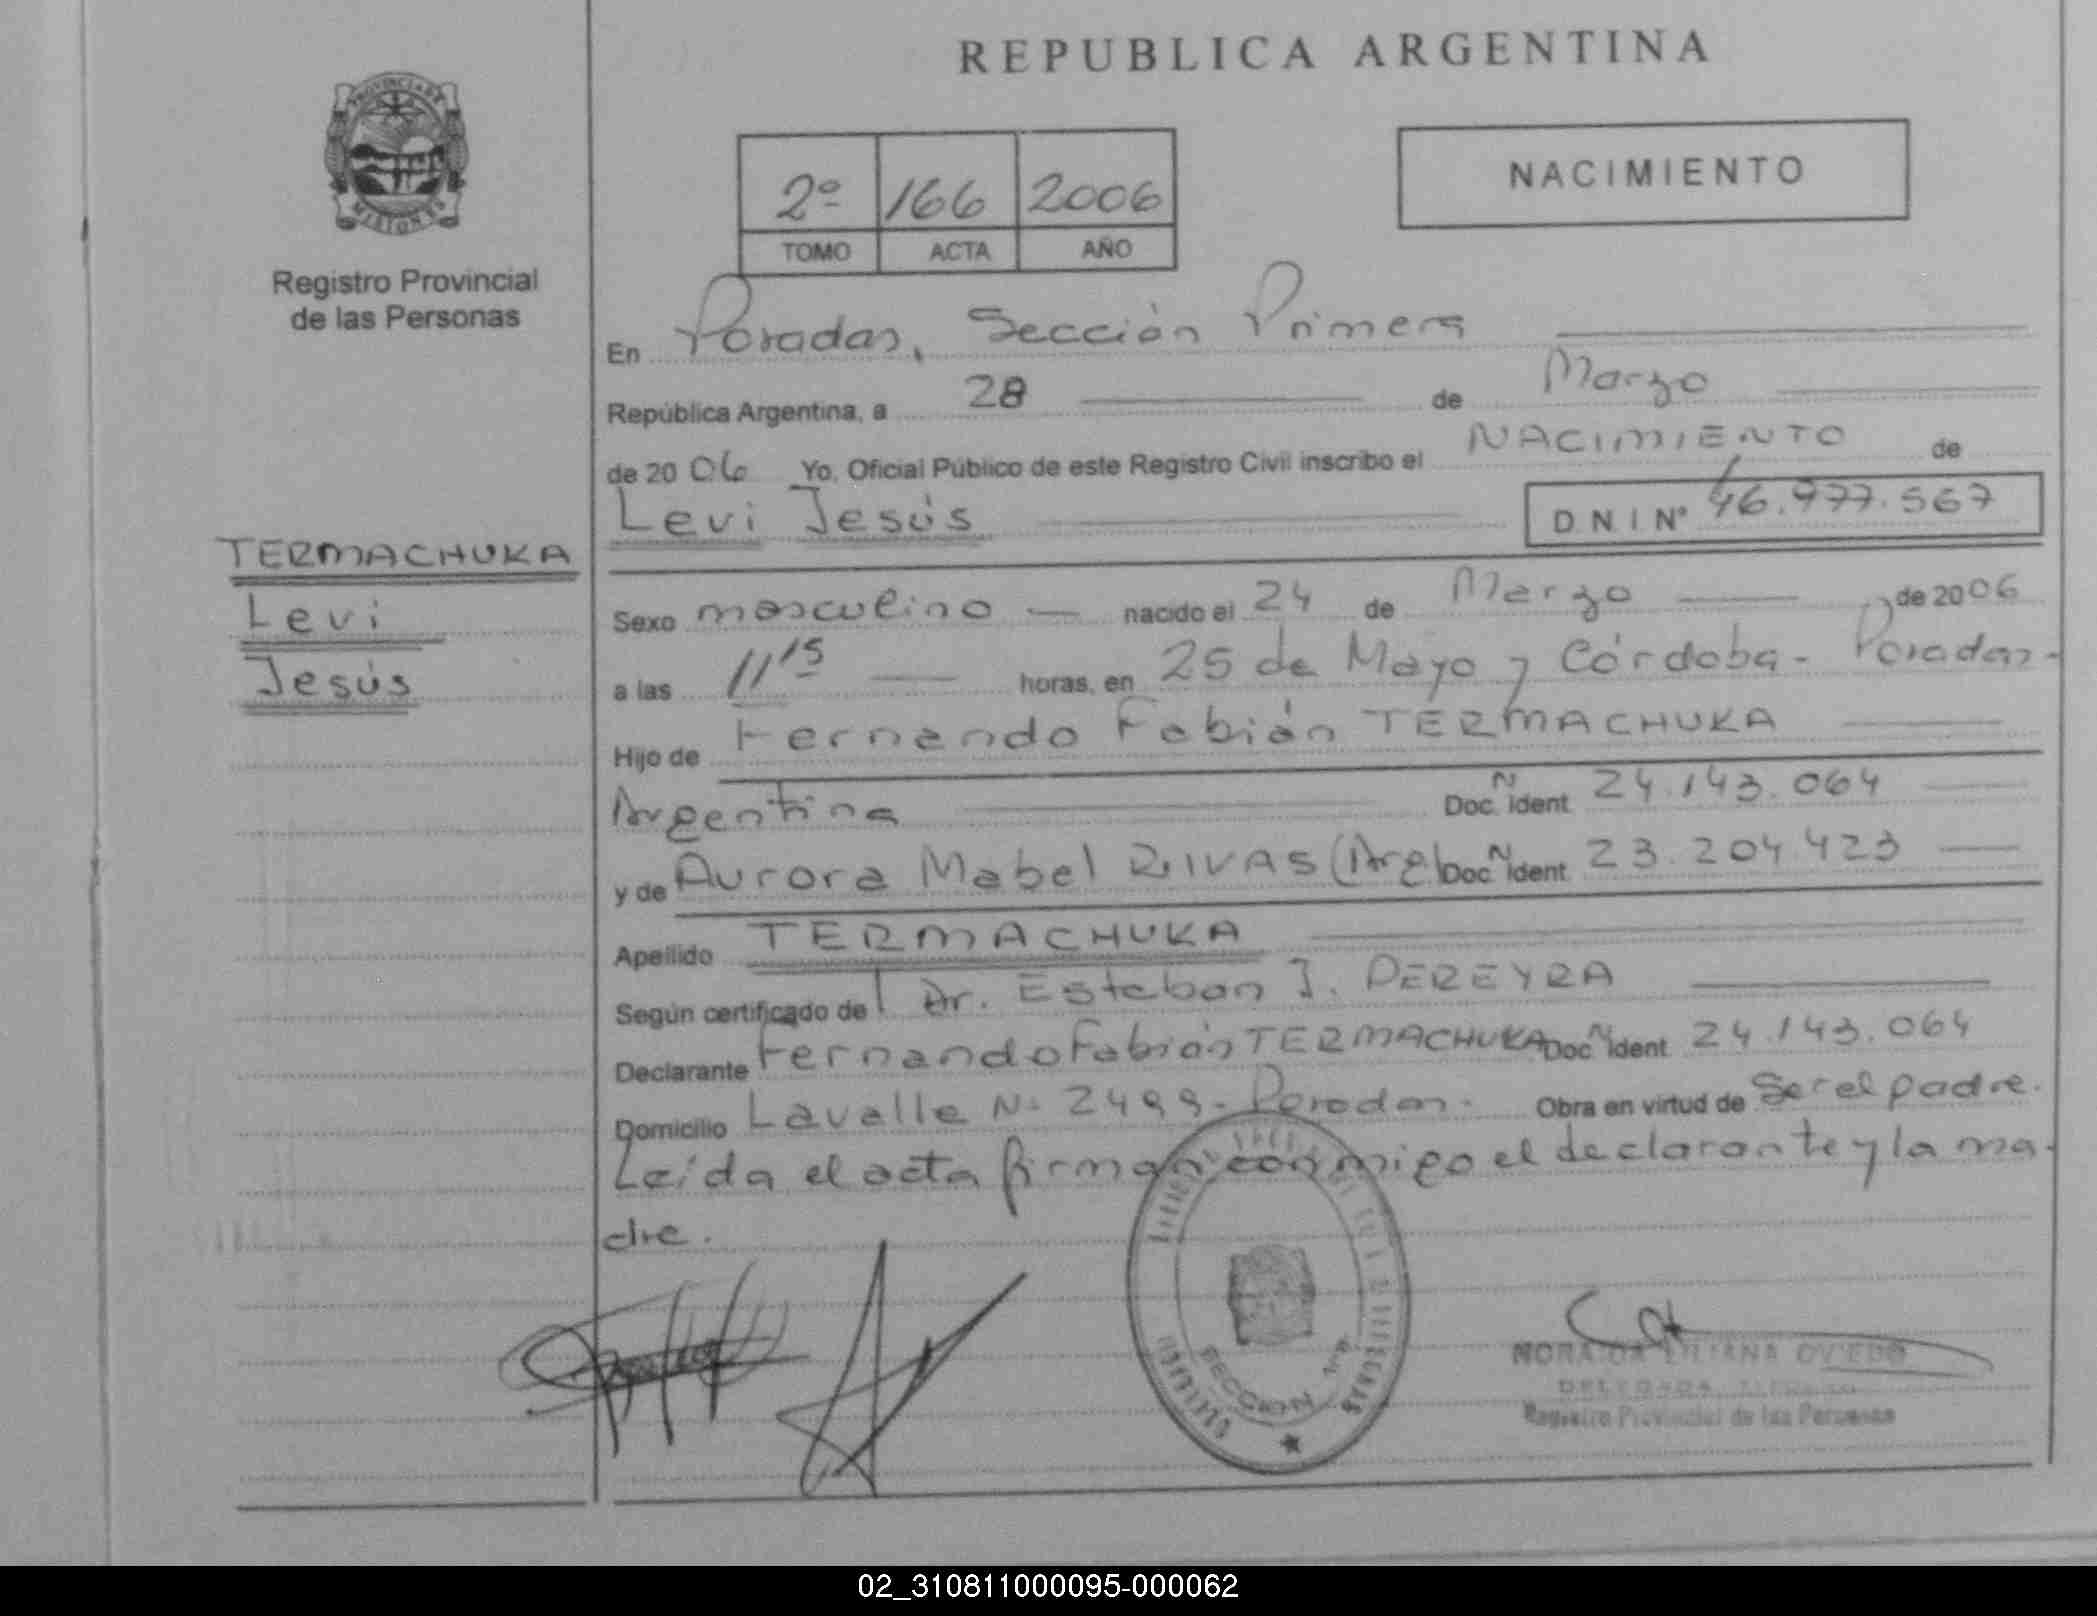 REPUBLICA ARGENTINA
PROVINCIA DE
MISIONES
Registro Provincial
de las Personas
2º 166 2006
TOMO ACTA AÑO
NACIMIENTO
En Posadas, Sección Primera
República Argentina, a 28 de Marzo
de 2006 Yo, Oficial Público de este Registro Civil inscribo el NACIMIENTO de
Levi Jesús D N I Nº 46.977.567
TERMACHUKA
Levi
Jesús
Sexo masculino nacido el 24 de Marzo de 2006
a las 11 15 horas, en 25 de Mayo y Córdoba - Posadas -
Hijo de Fernando Fabián TERMACHUKA
Argentina Doc. Ident. N 24.143.064
y de Aurora Mabel RIVAS (Arg) Doc. N Ident. 23.204.423
Apellido TERMACHUKA
Según certificado de Dr. Esteban J. PEREYRA
Declarante Fernando Fabián TERMACHUKA Doc. N Ident. 24.143.064
Domicilio Lavalle Nº 2499 - Posadas. Obra en virtud de Ser el padre.
Leída el acta firman conmigo el declarante y la ma-
dre.
SECCION 1ra
LILIANA OVIEDO
DELEGADA
Registro Provincial de las Personas
02_310811000095-000062